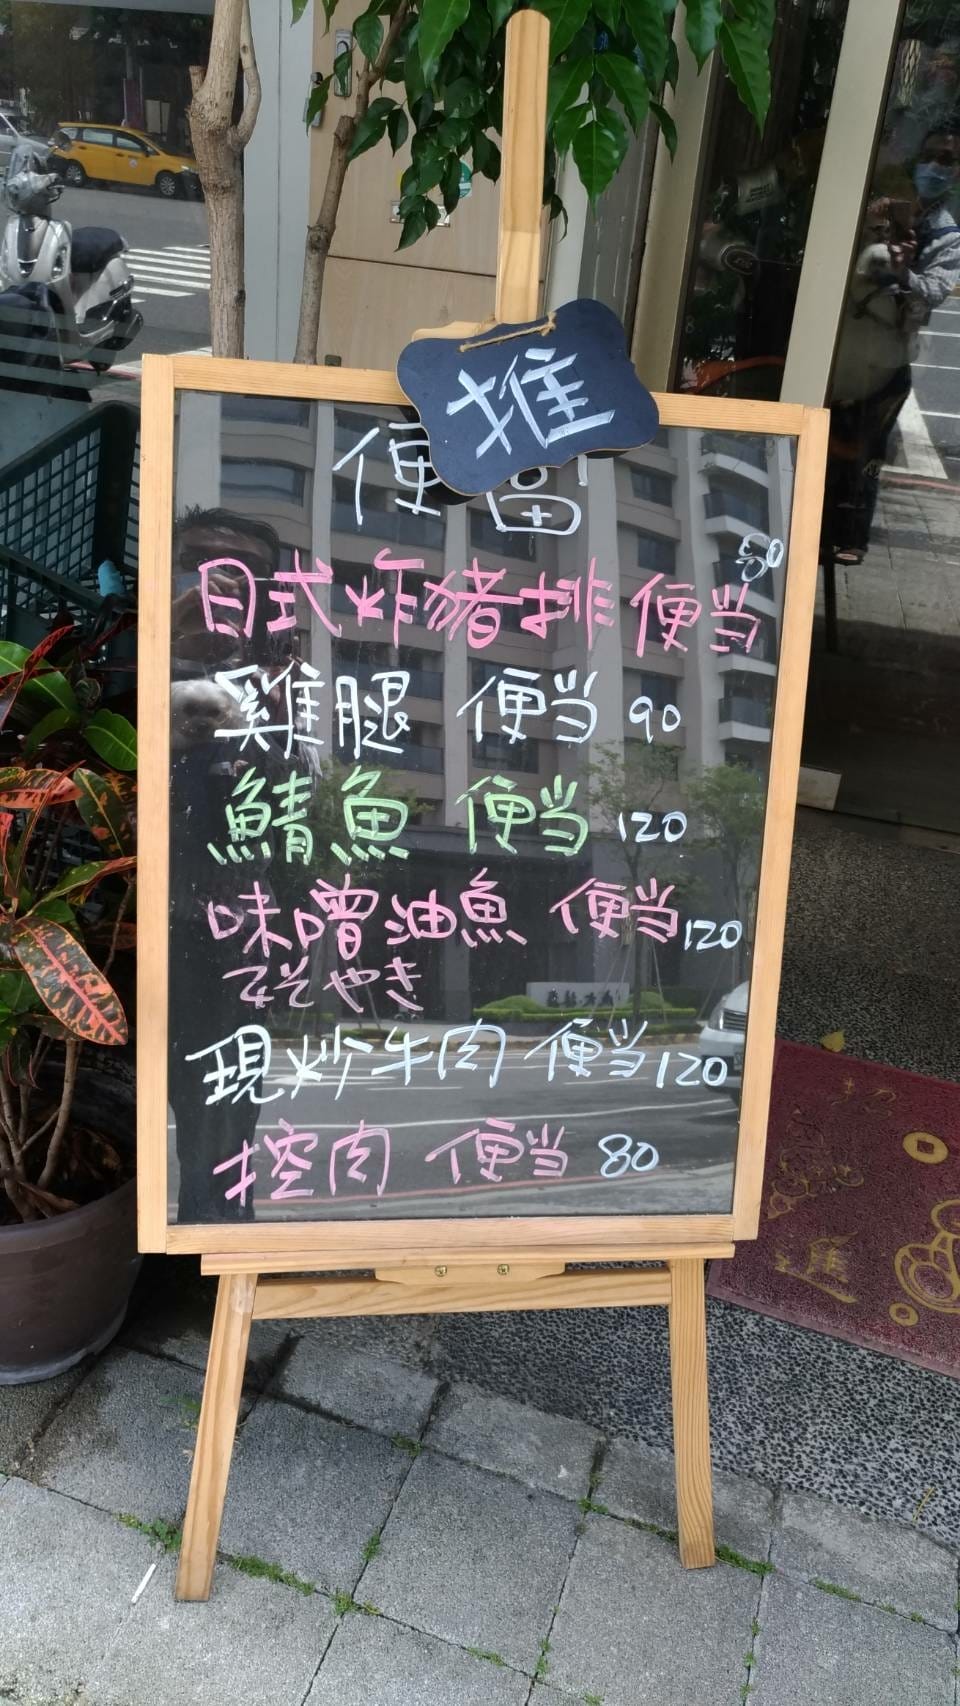 推
便當
80
日式炸豬排便当
雞腿 便当 90
鯖魚 便当 120
味噌油魚 便当 120
みそやき
現炒牛肉 便当 120
控肉 便当 80
招
進